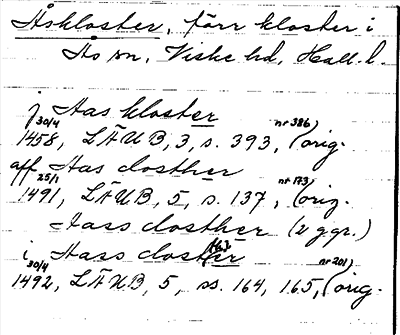 Åskloster, förr kloster i
Ås sn, Viske hd, Hall. l.
j Aas kloster
30/4 1458, LÄUB, 3, s. 393, (nr 386) orig.
aff Aas closther
25/1 1491, LÄUB, 5, s. 137, (nr 173) orig.
Aass closther (2 ggr.)
i Aass closter
30/4 1492, LÄUB, 5, ss. 164, 165, (nr 201) orig.